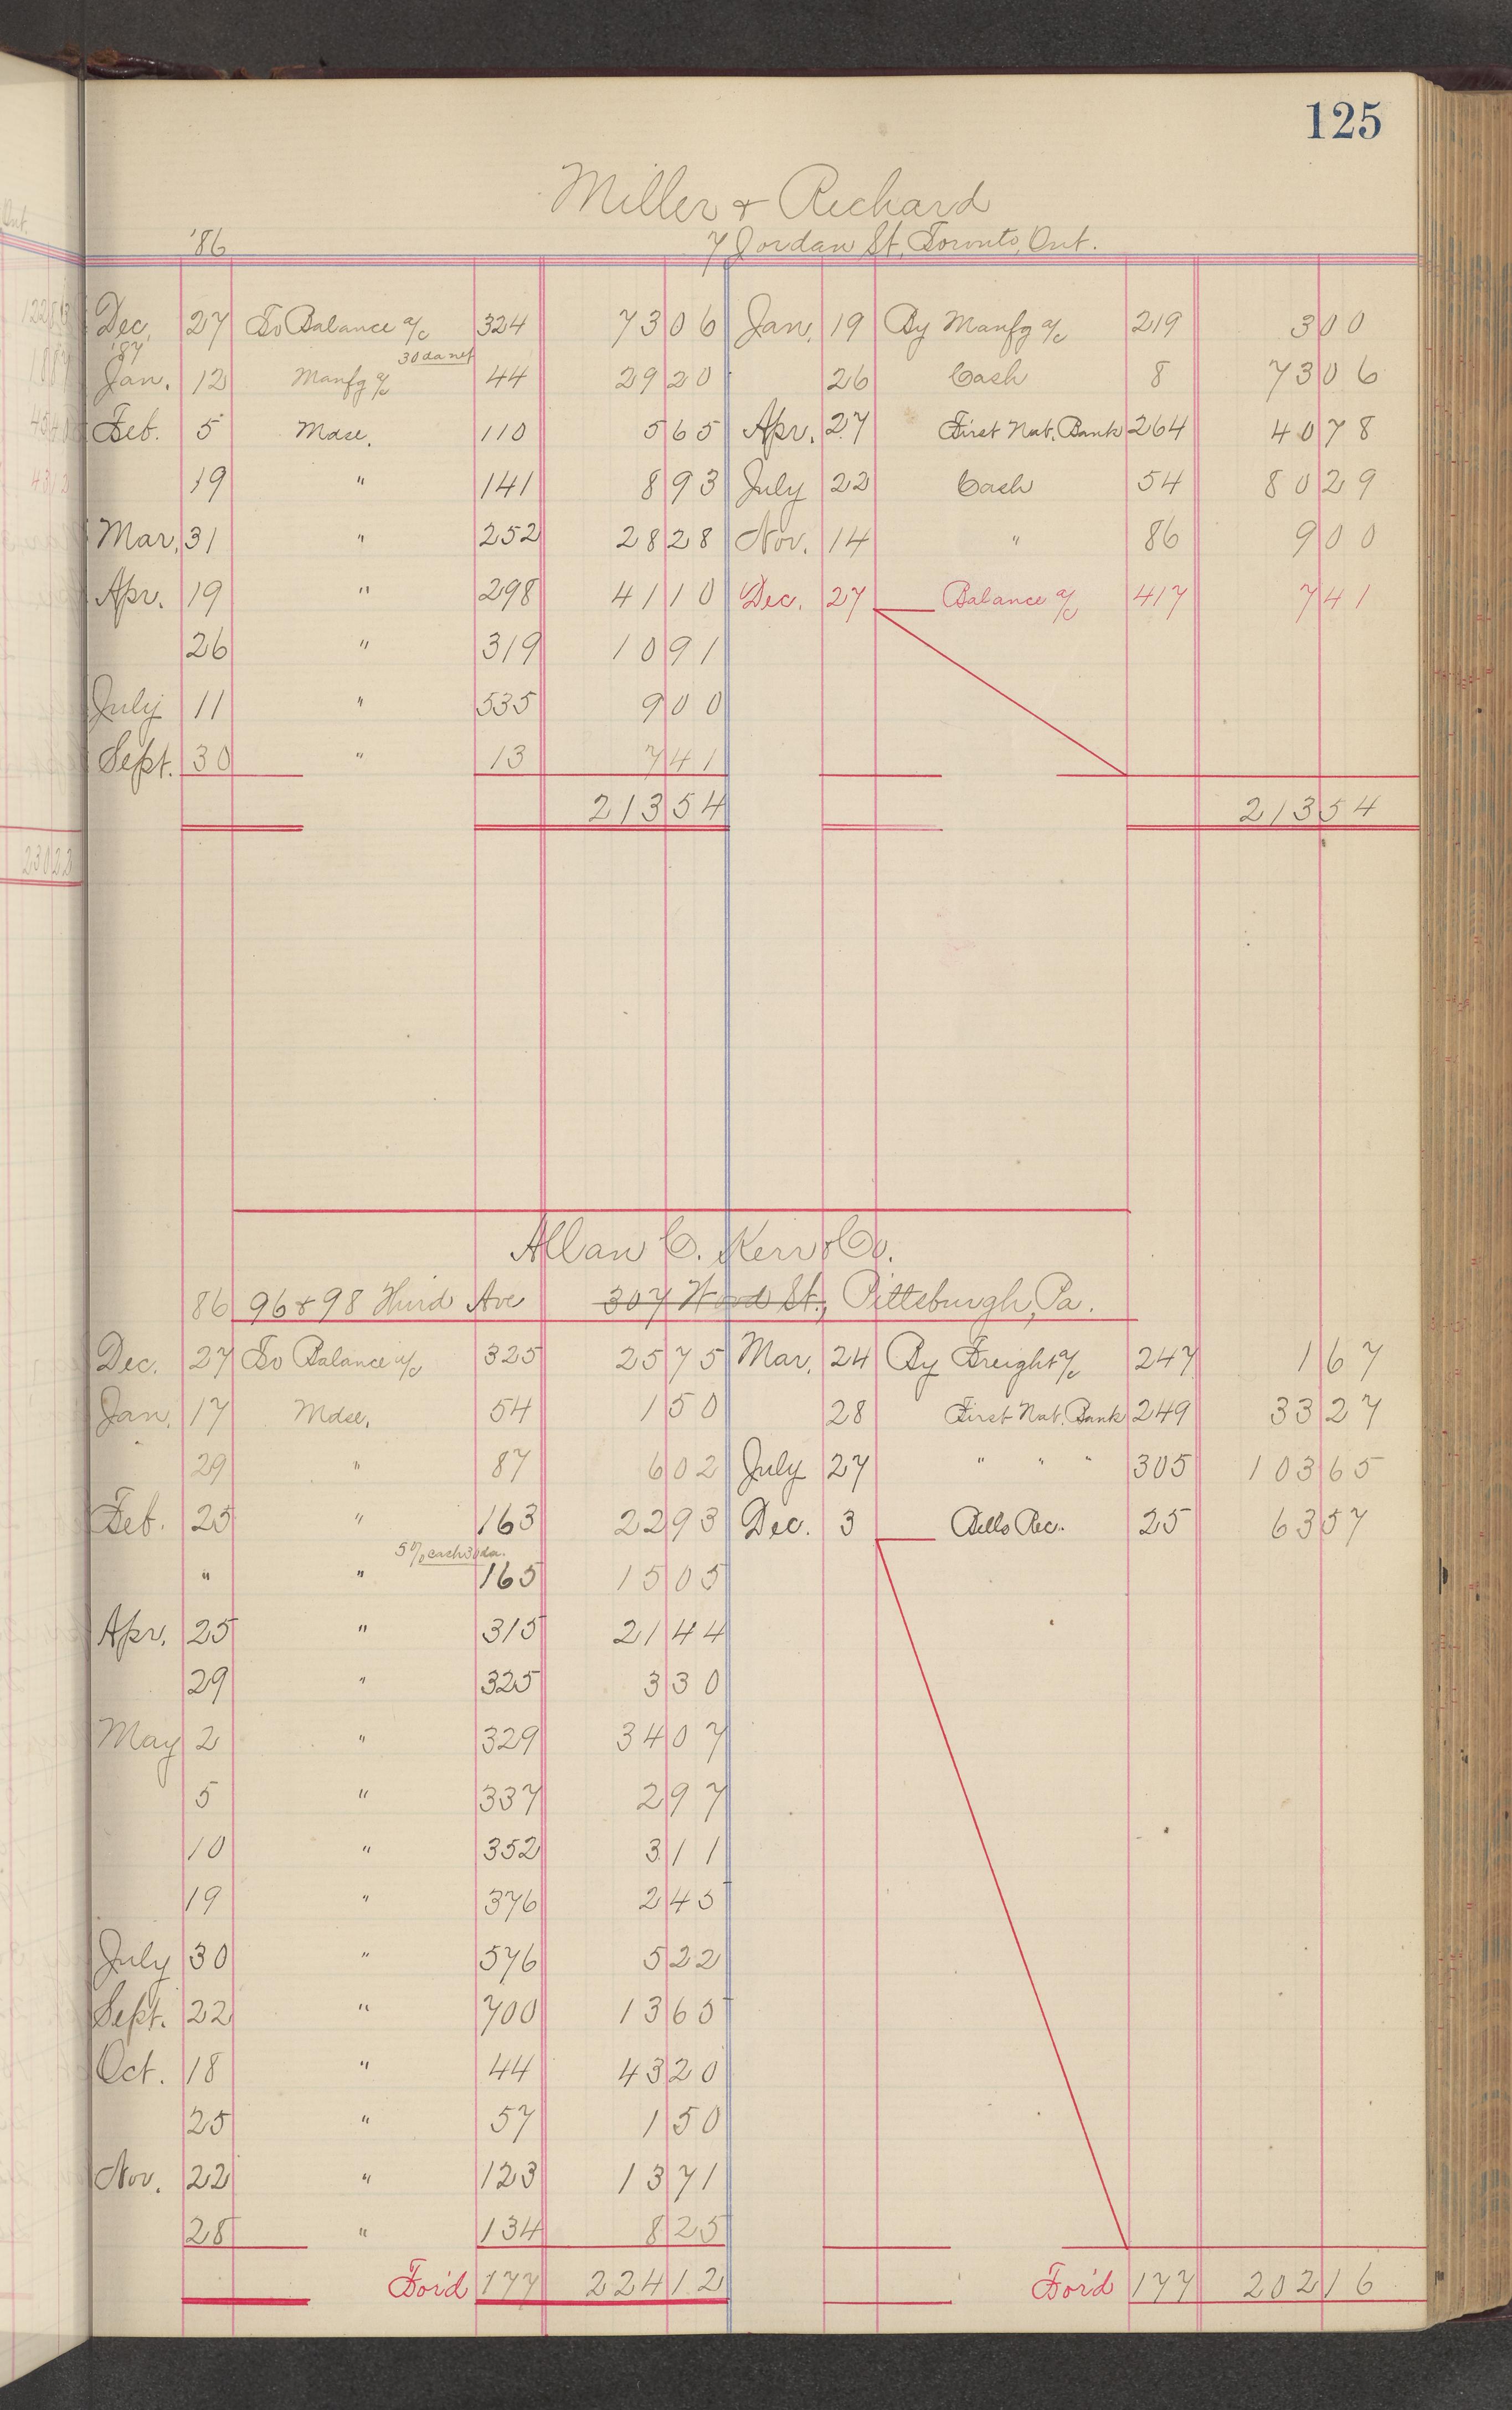 125
Miller & Richard
'86 7 Jordan St, Toronto, Ont.
Dec. 27 To Balance a/c 324 73 06 Jan. 19 By Manfg a/c 219 3 00
'87 30 da net
Jan. 12 Manfg a/c 44 29 20 26 Cash 8 73 06
Feb. 5 Mdse. 110 5 65 Apr. 27 First Nat. Bank 264 40 78
19 " 141 8 93 July 22 Cash 54 80 29
Mar. 31 " 252 28 28 Nov. 14 " 86 9 00
Apr. 19 " 298 41 10 Dec. 27 Balance a/c 417 7 41
26 " 319 10 91
July 11 " 535 9 00
Sept. 30 " 13 7 41
213 54 213 54
Allan C. Kerr & Co.
86 96 & 98 Third Ave 307 Wood St., Pittsburgh, Pa.
Dec. 27 To Balance a/c 325 25 75 Mar. 24 By Freight a/c 247 1 67
Jan. 17 Mdse. 54 1 50 28 First Nat. Bank 249 33 27
29 " 87 6 02 July 27 " " " 305 103 65
Feb. 25 " 163 22 93 Dec. 3 Bills Rec. 25 63 57
5% cash 30 da.
" " 165 15 05
Apr. 25 " 315 21 44
29 " 325 3 30
May 2 " 329 34 07
5 " 337 2 97
10 " 352 3 11
19 " 376 2 45
July 30 " 576 5 22
Sept. 22 " 700 13 65
Oct. 18 " 44 43 20
25 " 57 1 50
Nov. 22 " 123 13 71
28 " 134 8 25
For'd 177 224 12 For'd 177 202 16